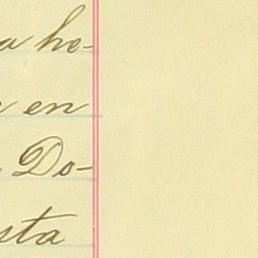 a he-
en
Do-
sta